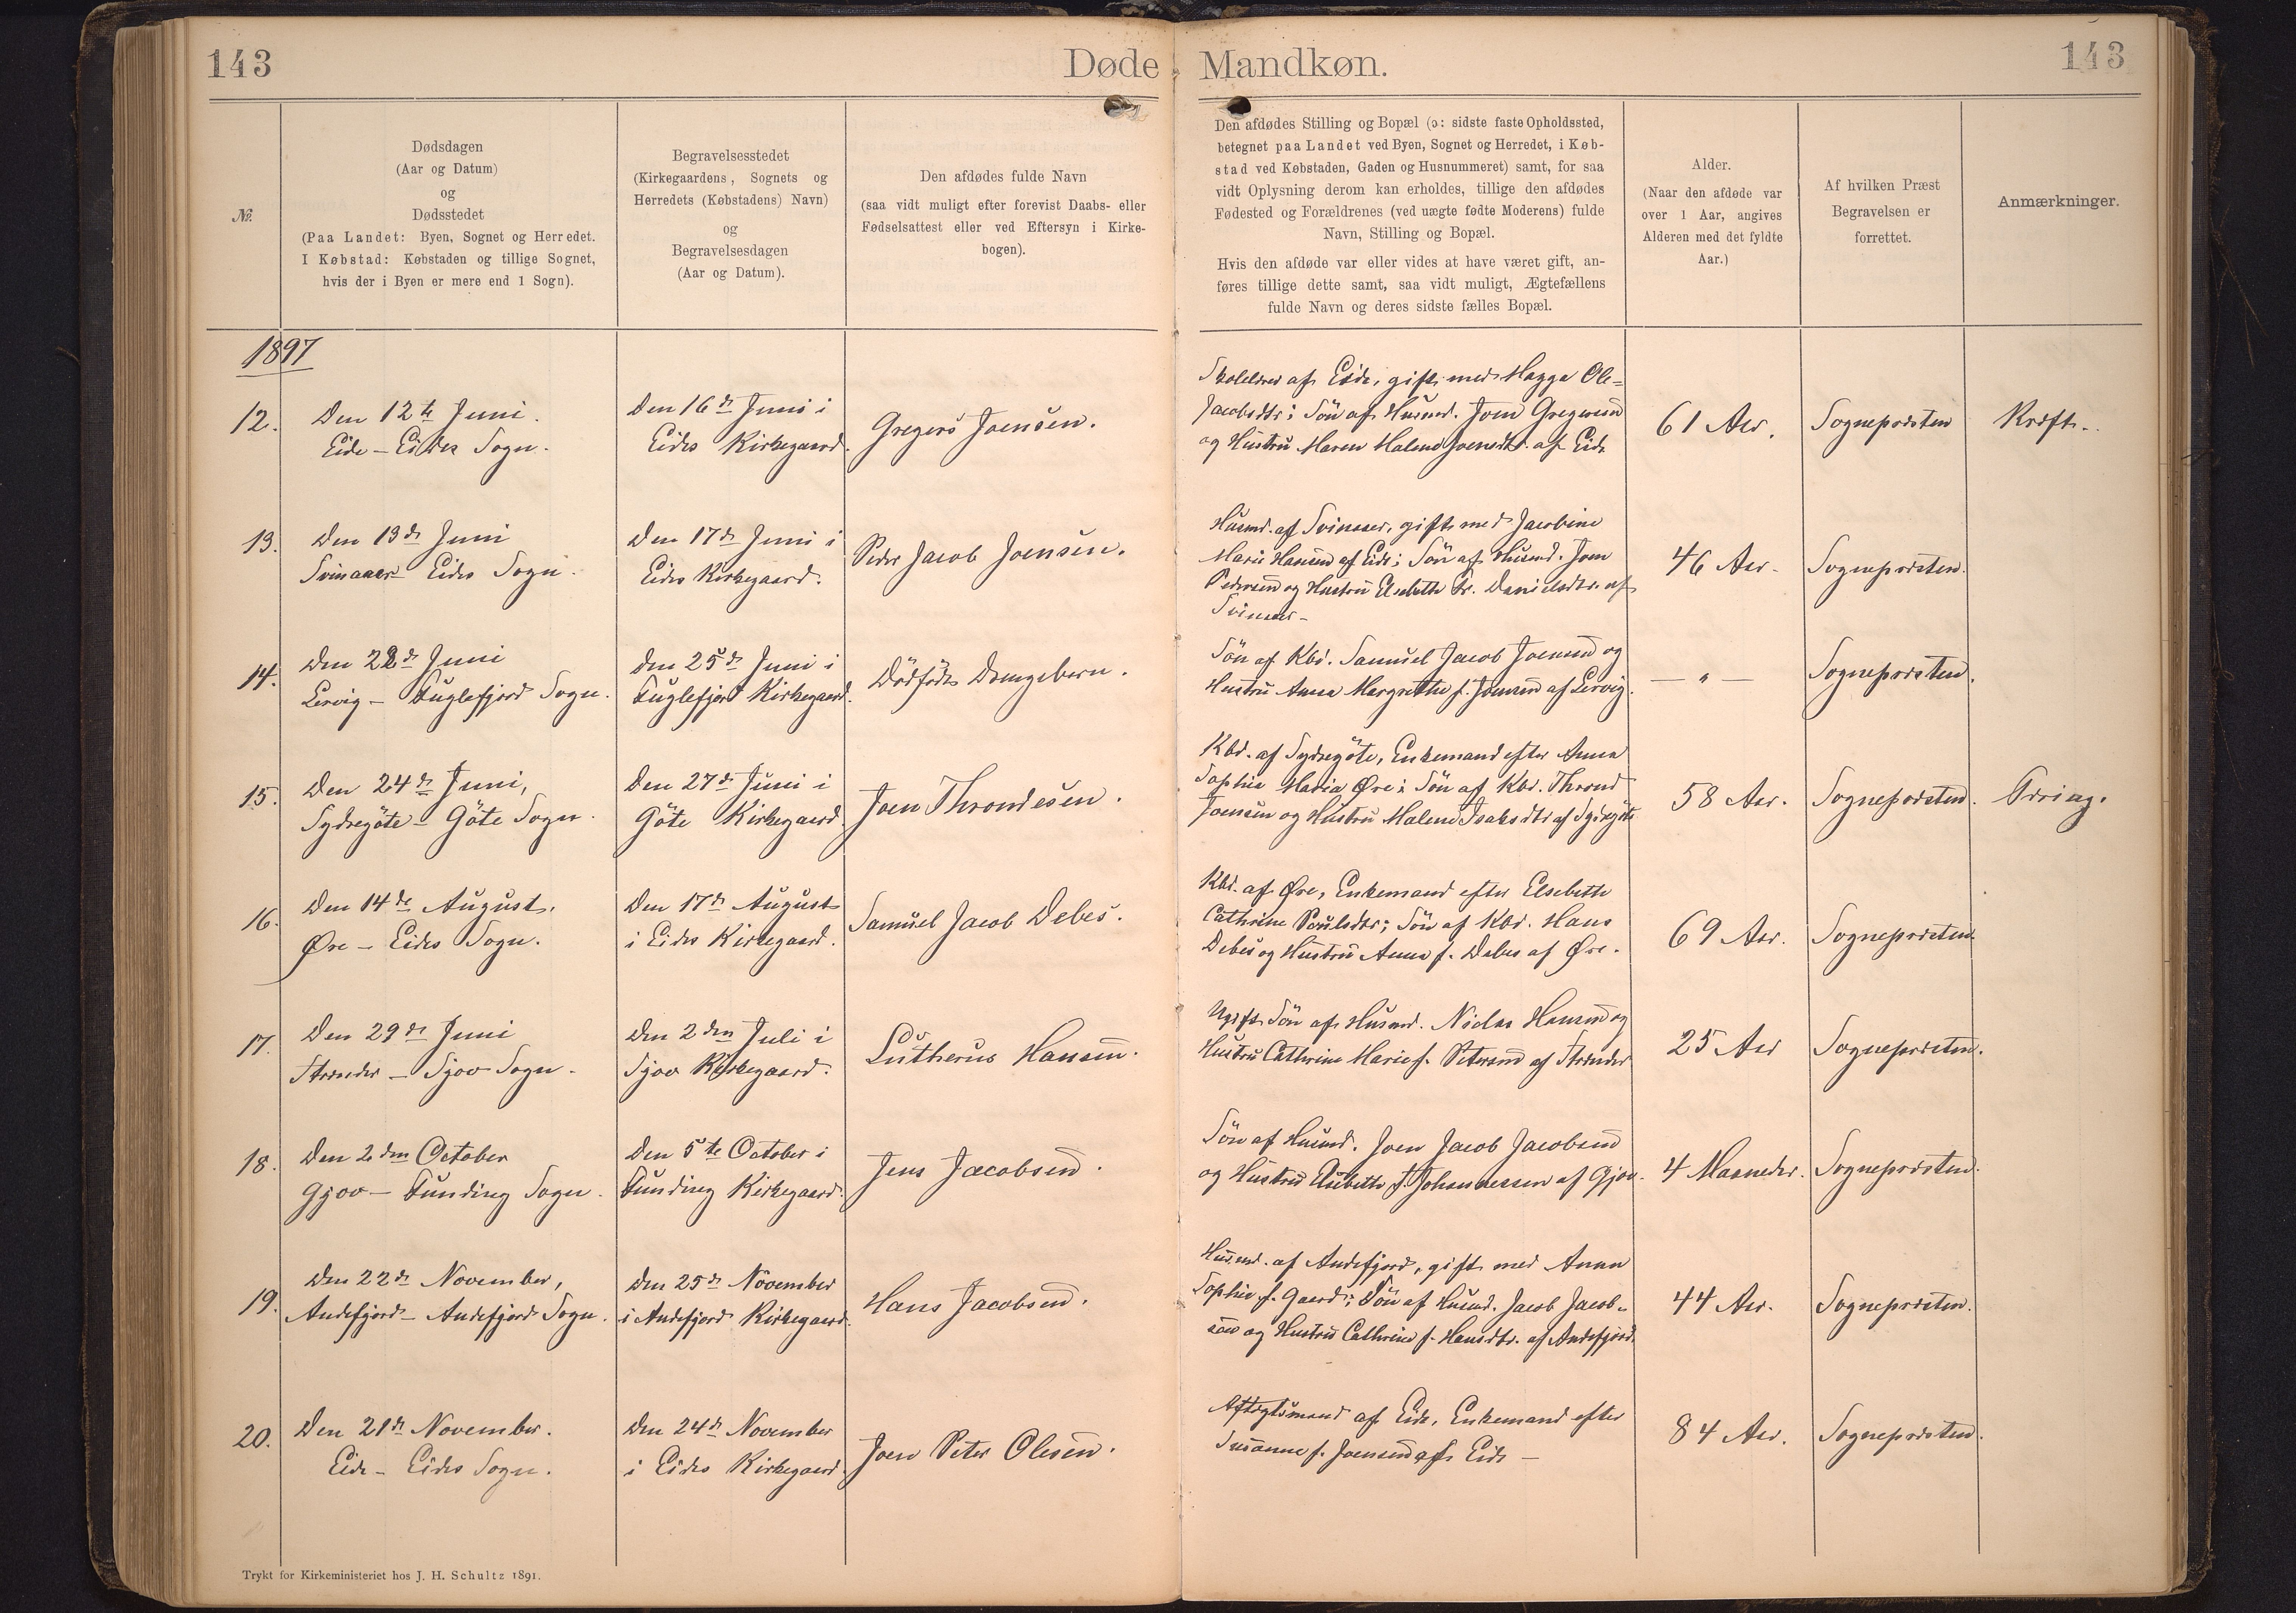 143
Døde
Mandkøn.
143
№.
Dødsdagen
(Aar og Datum)
og
Dødsstedet
(Paa Landet: Byen, Sognet og Herredet.
I Købstad: Købstaden og tillige Sognet,
hvis der i Byen er mere end 1 Sogn).
Begravelsesstedet
(Kirkegaardens, Sognets og
Herredets (Købstadens) Navn)
og
Begravelsesdagen
(Aar og Datum).
Den afdødes fulde Navn
(saa vidt muligt efter forevist Daabs- eller
Fødselsattest eller ved Eftersyn i Kirke-
bogen).
Den afdødes Stilling og Bopæl (ɔ: sidste faste Opholdssted,
betegnet paa Landet ved Byen, Sognet og Herredet, i Køb-
stad ved Købstaden, Gaden og Husnummeret) samt, for saa
vidt Oplysning derom kan erholdes, tillige den afdødes
Fødested og Forældrenes (ved uægte fødte Moderens) fulde
Navn, Stilling og Bopæl.
Hvis den afdøde var eller vides at have været gift, an-
føres tillige dette samt, saa vidt muligt, Ægtefællens
fulde Navn og deres sidste fælles Bopæl.
Alder.
(Naar den afdøde var
over 1 Aar, angives
Alderen med det fyldte
Aar.)
Af hvilken Præst
Begravelsen er
forrettet.
Anmærkninger.
1897
12.
Den 12te Juni.
Eide - Eides Sogn.
Den 16de Juni i
Eides Kirkegaard.
Gregers Joensen.
af Eide, gift med Ole=
Jacobsdtr; Søn af Husmd. Joen Gregersen
og Hustru Maren Malene Joensdtr. af Eide
61 Aar.
Sognepræsten
Kræft.
13.
Den 13de Juni
Svinaaer - Eides Sogn.
Den 17de Juni i
Eides Kirkegaard.
Peder Jacob Joensen.
Husmd. af Svinaaer, gift med Jacobine
Marie Hansen af Eide; Søn af Husmd. Joen
Pedersen og Hustru Elsebeth Danielsdtr. af
Svinaaer -
46 Aar.
Sognepræsten.
14.
Den 22de Juni
Lervig - Fuglefjord Sogn.
Den 25de Juni i
Fuglefjord Kirkegaard.
Dødfødt Drengebarn.
Søn af Kbd. Samuel Jacob Joensen og
Hustru Anna Margrethe f. Joensen af Lervig.
— " —
Sognepræsten.
15.
Den 24de Juni,
Sydregöte - Göte Sogn.
Den 27de Juni i
Göte Kirkegaard.
Joen Throndesen.
Kbd. af Sydregöte, Enkemand efter Anna
Sophie Maria Øre; Søn af Kbd. Thrond
Joensen og Hustru Malene Isaksdtr af Sydregöte
58 Aar.
Sognepræsten.
Tæring.
16.
Den 14de August.
Øre - Eides Sogn.
Den 17de August
i Eides Kirkegaard.
Samuel Jacob Debes.
Kbd. af Øre, Enkemand efter Elsebeth
Cathrine Poulsdtr; Søn af Kbd. Hans
Debes og Hustru Anna f. Debes af Øre.
69 Aar.
Sognepræsten.
17.
Den 29de Juni
Strænder - Sjov Sogn.
Den 2den Juli i
Sjov Kirkegaard.
Lutherus Hansen.
Ugift Søn af Husmd. Niclas Hansen og
Hustru Cathrine Marie f. Petersen af Strænder
25 Aar
Sognepræsten.
18.
Den 2den October
Gjov - Funding Sogn.
Den 5te October i
Funding Kirkegaard.
Jens Jacobsen.
Søn af Husmd. Joen Jacob Jacobsen
og Hustru Elsebeth f. Johannessen af Gjov.
4 Maaneder.
Sognepræsten.
19.
Den 22de November,
Andefjord - Andefjord Sogn.
Den 25de November
i Andefjord Kirkegaard.
Hans Jacobsen.
Husmd. af Andefjord, gift med Anna
Sophie f. Gaard; Søn af Husmd. Jacob Jacob-
sen og Hustru Cathrine f. Hansdtr. af Andefjord.
44 Aar.
Sognepræsten.
20.
Den 21de November.
Eide - Eides Sogn.
Den 24de November
i Eides Kirkegaard.
Joen Peter Olesen.
Aftægtsmand af Eide, Enkemand efter
Susanne f. Joensen af Eide -
84 Aar.
Sognepræsten.
Trykt for Kirkeministeriet hos J. H. Schultz 1891.